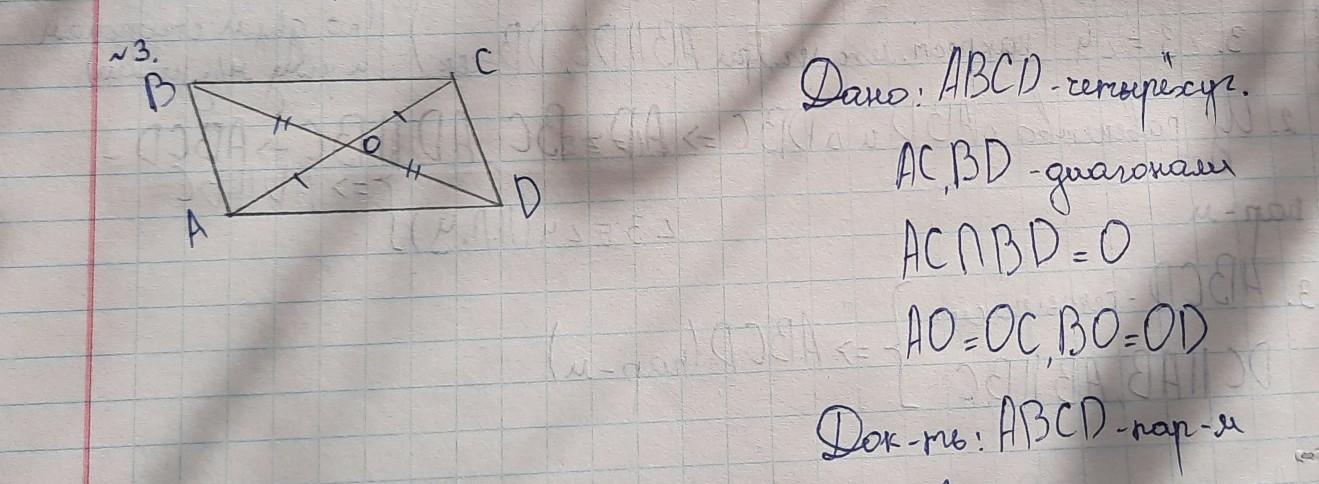 ~3.
B
C
O
A
D
Дано: ABCD - четырёхуг.
AC, BD - диагонали
AC∩BD = O
AO = OC, BO = OD
Док-ть: ABCD - пар-м